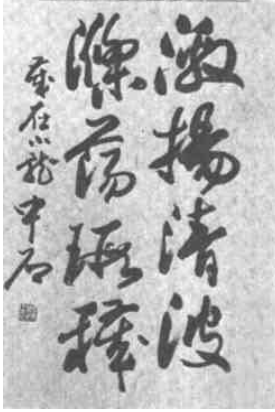 激揚清波
滌蕩瑕穢
歲在小龍 中石